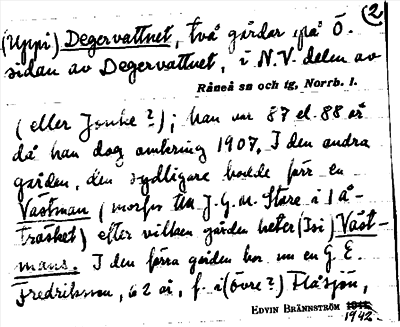 (2)
(Uppi) Degervattnet, två gårdar på Ö.
sidan av Degervattnet, i N.V. delen av
Råneå sn och tg, Norrb. l.
(eller Jonke?); han var 87 el. 88 år
då han dog omkring 1907. I den andra
gården, den sydligare bodde förr en
Västman (morfar till J.G.M. Stare i
träsket) efter vilken gården heter (Isi) Väst-
mans. I den förra gården bor nu en G.E.
Fredriksson, 62 år, f. i (övre?) Flåsjön,
EDVIN BRÄNNSTRÖM
1942.